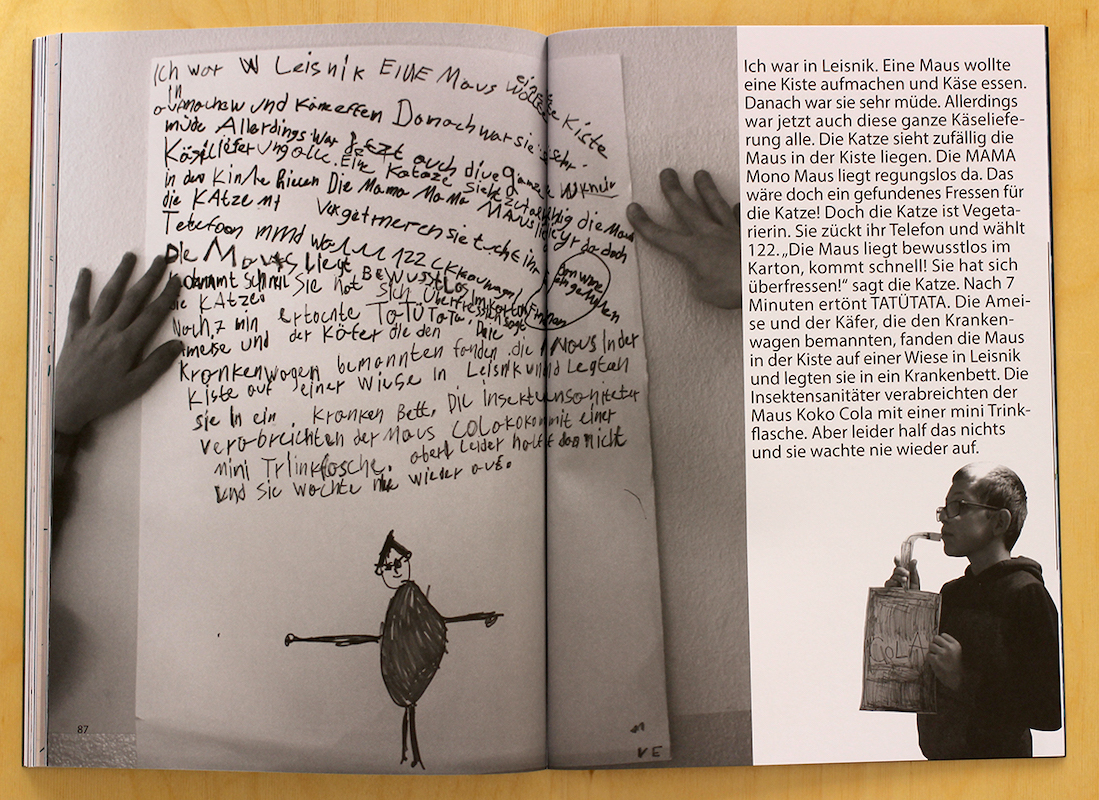 Ich war W Leisnik EINE Maus eine
in wollte Kiste
und Käse essen Danach war sie sehr
müde Allerdings war jetzt auch diese ganze
Käseliefer ung alle. Eine Katze sieht zufällig die Maus
in der Kiste liegen Die Mama Mama MAUS liegt da doch
die KAtze ihr
Telefoon 122
Die Maus liegt BEWUSStLOS im Karton
kommt Schnell Sie hat sich überfressen sagt
die KAtze
Nach 7 min ertönte TaTÜTaTa. Die
Ameise und der Käfer die den
Krankenwagen bemannten fanden die MAUS In der
Kiste auf einer Wiese in Leisnik und Legten
sie In ein Kranken Bett. Die Insektensaniteter
verabreichten der Maus COLAkoko mit einer
mini Trlinkflasche. aber Leider half das nicht
und Sie wachte nie wieder auf.
VE
87
Ich war in Leisnik. Eine Maus wollte
eine Kiste aufmachen und Käse essen.
Danach war sie sehr müde. Allerdings
war jetzt auch diese ganze Käseliefe-
rung alle. Die Katze sieht zufällig die
Maus in der Kiste liegen. Die MAMA
Mono Maus liegt regungslos da. Das
wäre doch ein gefundenes Fressen für
die Katze! Doch die Katze ist Vegeta-
rierin. Sie zückt ihr Telefon und wählt
122. „Die Maus liegt bewusstlos im
Karton, kommt schnell! Sie hat sich
überfressen!“ sagt die Katze. Nach 7
Minuten ertönt TATÜTATA. Die Amei-
se und der Käfer, die den Kranken-
wagen bemannten, fanden die Maus
in der Kiste auf einer Wiese in Leisnik
und legten sie in ein Krankenbett. Die
Insektensanitäter verabreichten der
Maus Koko Cola mit einer mini Trink-
flasche. Aber leider half das nichts
und sie wachte nie wieder auf.
COLA